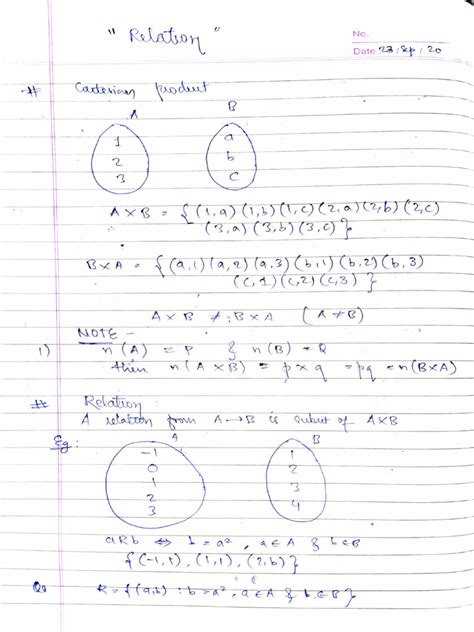 " Relation "
No.
Date 23 / Sep / 20
# Cartesian product
A B
1 a
2 b
3 c
A × B = { (1,a) (1,b) (1,c) (2,a) (2,b) (2,c)
(3,a) (3,b) (3,c) }
B × A = { (a,1) (a,2) (a,3) (b,1) (b,2) (b,3)
(c,1) (c,2) (c,3) }
A × B ≠ B × A ( A ≠ B )
NOTE -
1) n (A) = P & n (B) = Q
then n (A × B) = p × q = pq = n(B×A)
# Relation :
A relation from A → B is subset of A×B
Eg :
A B
-1 1
0 2
1 3
2 4
3
aRb ⇔ b = a², a ∈ A & b ∈ B
{ (-1,1), (1,1), (2,b) }
Q. R = { (a,b) : b = a², a ∈ A & b, ∈ B }